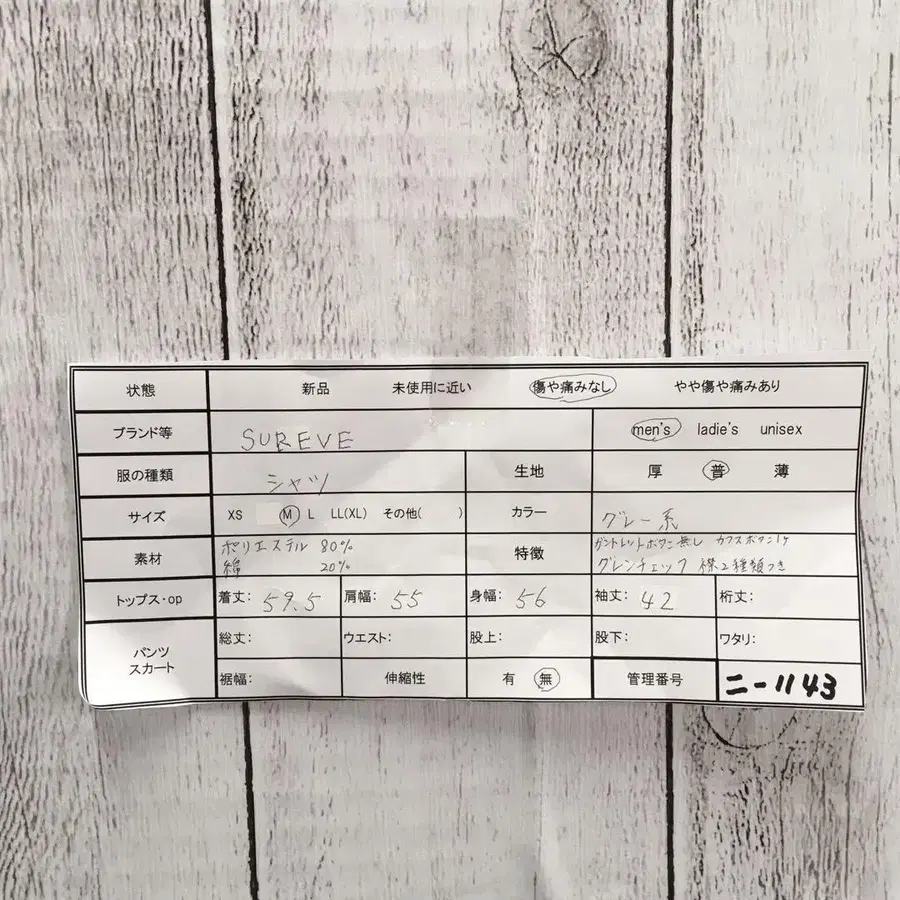 状態 新品 未使用に近い 傷や痛みなし やや傷や痛みあり
ブランド等 SUREVE men's ladie's unisex
服の種類 シャツ 生地 厚 普 薄
サイズ XS M L LL(XL) その他( ) カラー グレー系
素材 ポリエステル 80% 綿 20% 特徴 ガントレットボタン無し カフスボタン1ヶ グレンチェック 襟2種類つき
トップス・op 着丈: 59.5 肩幅: 55 身幅: 56 袖丈: 42 裄丈:
パンツ スカート 総丈: ウエスト: 股上: 股下: ワタリ:
裾幅: 伸縮性 有 無 管理番号 ニ-1143